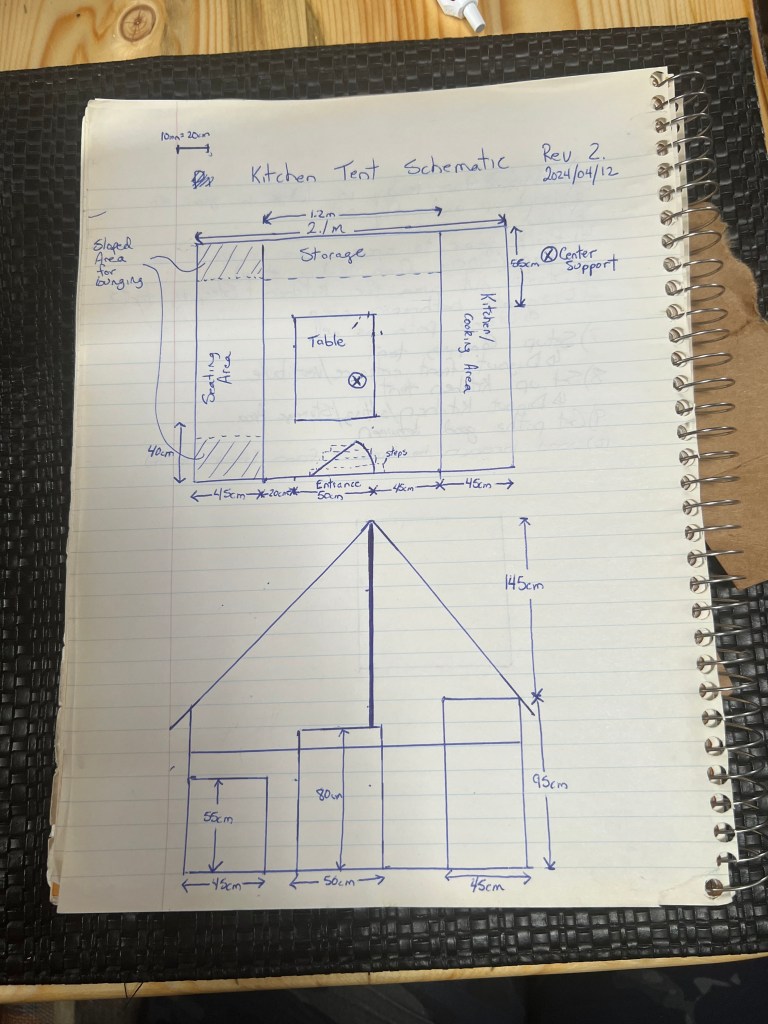 10mm=20cm
Kitchen Tent Schematic
Rev 2.
2024/04/12
1.2m
2.1m
Sloped
Area
for
lounging
Storage
55cm
Center
Support
Table
Kitchen/
Cooking Area
Seating
Area
40cm
steps
Entrance
45cm
20cm
50cm
45cm
45cm
145cm
95cm
80cm
55cm
45cm
50cm
45cm